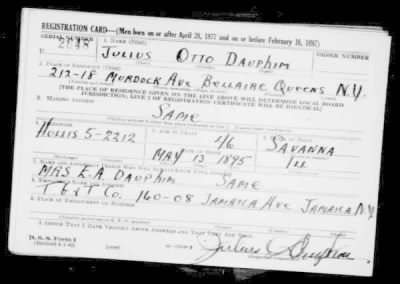 REGISTRATION CARD—(Men born on or after April 28, 1877 and on or before February 16, 1897)
SERIAL NUMBER 1. NAME (Print) ORDER NUMBER
U JULIUS OTTO DAUPHIM
(First) (Middle) (Last)
2. PLACE OF RESIDENCE (Print)
212-18 MURDOCK AVE BELLAIRE QUEENS N.Y.
[THE PLACE OF RESIDENCE GIVEN ON THE LINE ABOVE WILL DETERMINE LOCAL BOARD
JURISDICTION; LINE 2 OF REGISTRATION CERTIFICATE WILL BE IDENTICAL]
3. MAILING ADDRESS
SAME
4. TELEPHONE 5. AGE IN YEARS 6. PLACE OF BIRTH
HOLLIS 5-2212 46 SAVANNA
DATE OF BIRTH
MAY 13 1895 ILL
7. NAME AND ADDRESS OF PERSON WHO WILL ALWAYS KNOW YOUR ADDRESS
MRS E.A. DAUPHIM SAME
8. EMPLOYER'S NAME AND ADDRESS
CO. 160-08 JAMAICA AVE JAMAICA N.Y.
9. PLACE OF EMPLOYMENT OR BUSINESS
I AFFIRM THAT I HAVE VERIFIED ABOVE ANSWERS AND THAT THEY ARE TRUE.
D. S. S. Form 1
(Revised 4-1-42)
Julius